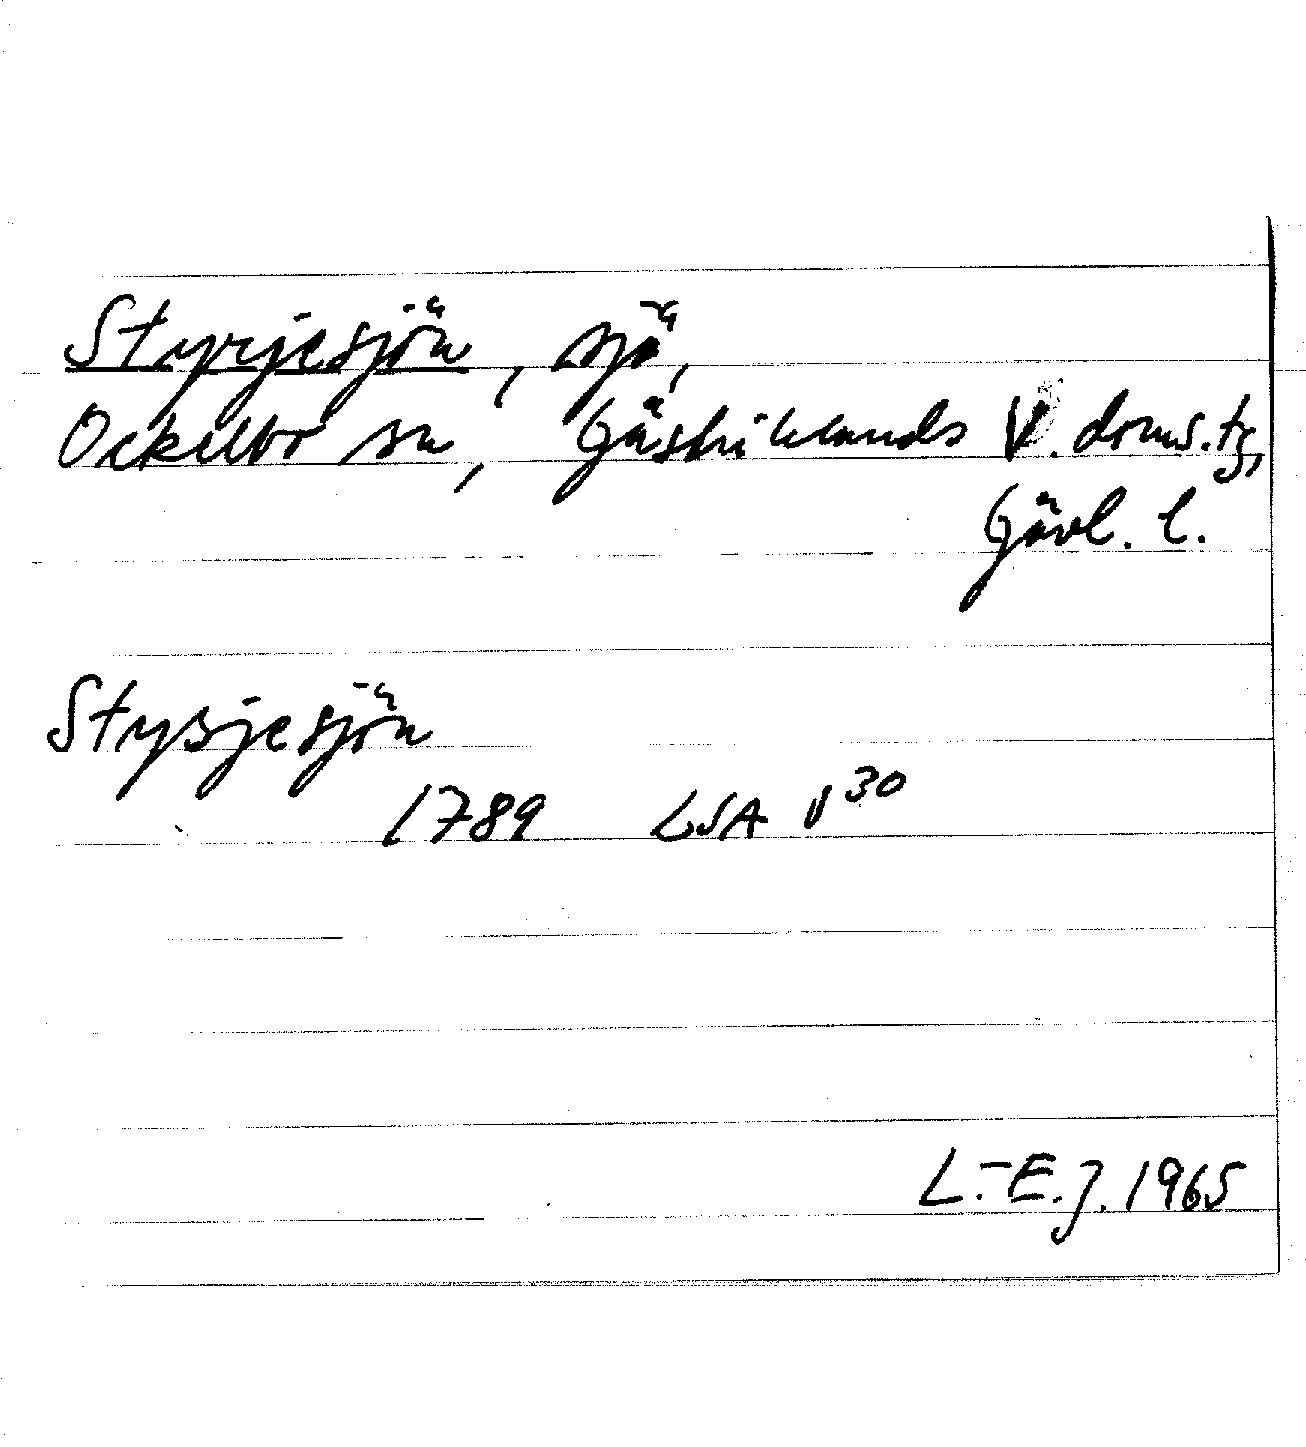 Styrjesjön, sjö,
Ockelbo sn, Gästriklands V. doms.tg,
Gävl. l.
Stysjesjön
1789 LSA v³⁰
L.-E.J. 1965